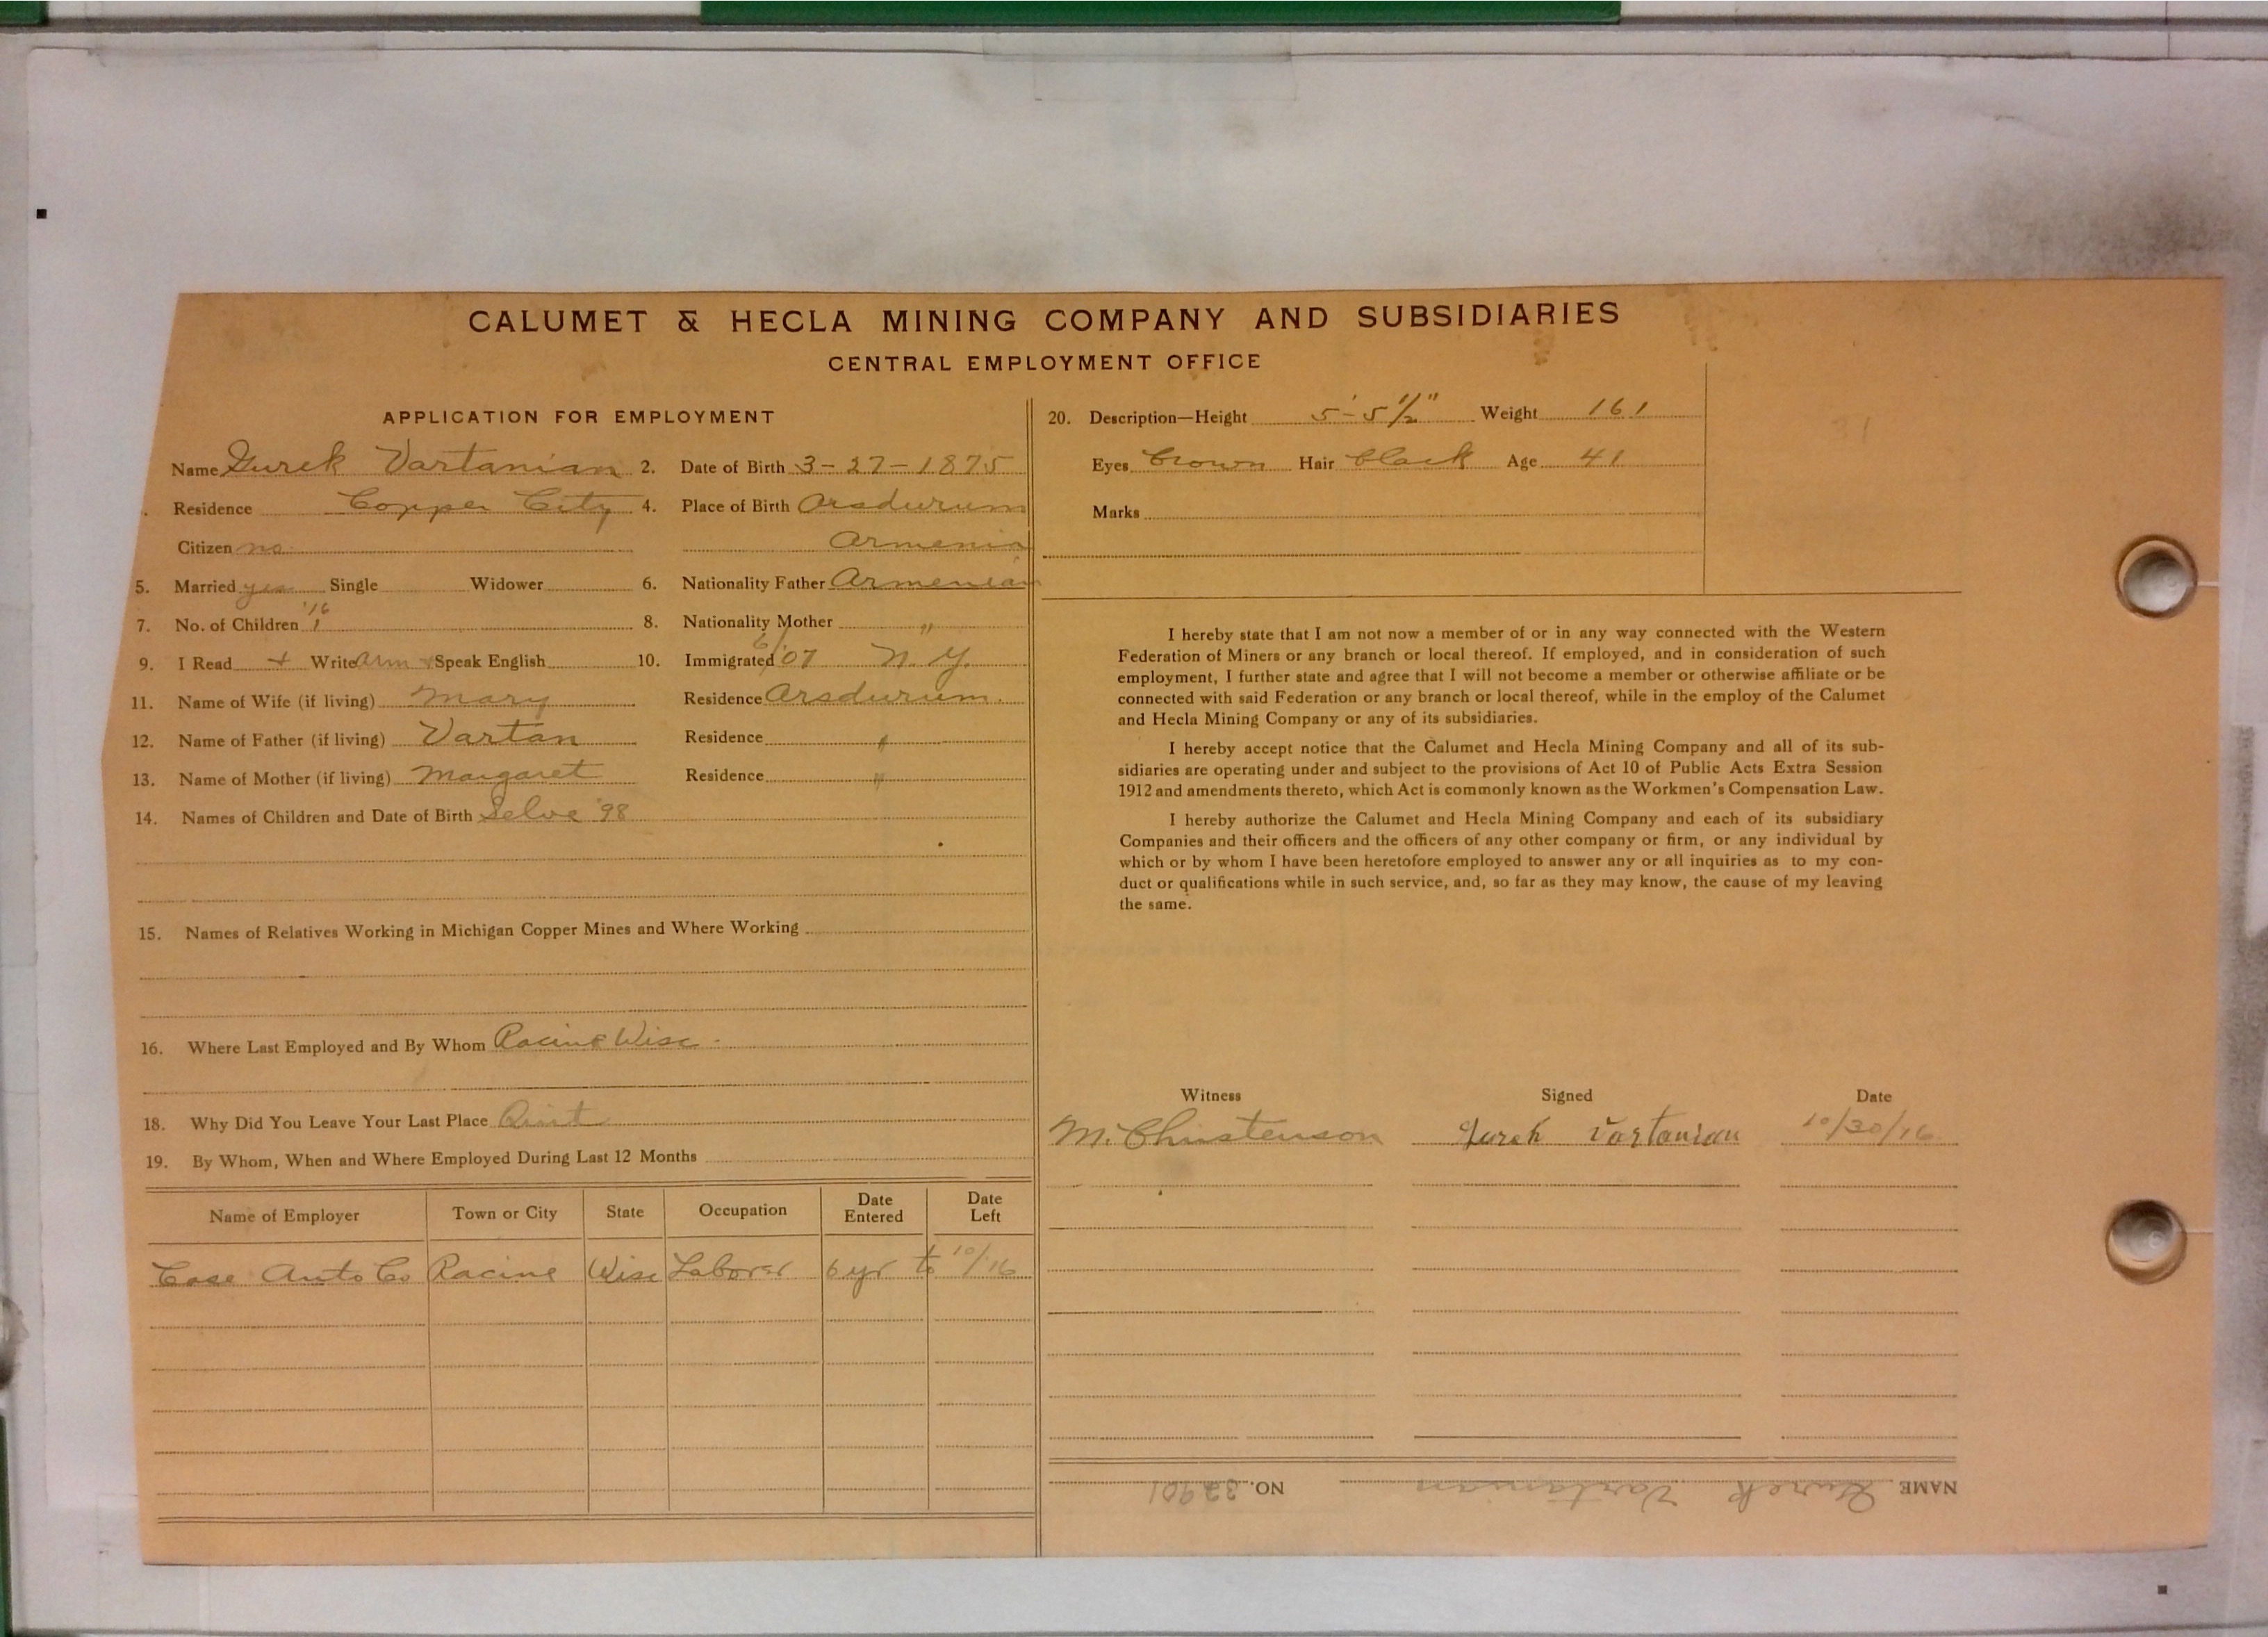 CALUMET & HECLA MINING COMPANY AND SUBSIDIARIES
CENTRAL EMPLOYMENT OFFICE
APPLICATION FOR EMPLOYMENT
Name Gurek Vartanian 2. Date of Birth 3-27-1875
Residence Copper City 4. Place of Birth Arsdurum
Citizen no Armenia
5. Married yes Single Widower 6. Nationality Father Armenian
7. No. of Children 1 '16 8. Nationality Mother "
9. I Read + Write Arm + Speak English 10. Immigrated 6/'07 N.Y.
11. Name of Wife (if living) Mary Residence Arsdurum.
12. Name of Father (if living) Vartan Residence "
13. Name of Mother (if living) Margaret Residence "
14. Names of Children and Date of Birth Selve '98
15. Names of Relatives Working in Michigan Copper Mines and Where Working
16. Where Last Employed and By Whom Racine Wisc.
18. Why Did You Leave Your Last Place Quit
19. By Whom, When and Where Employed During Last 12 Months
Name of Employer Town or City State Occupation Date Entered Date Left
Case Auto Co Racine Wisc Laborer 6 yr to 10/16
20. Description—Height 5'-5 1/2" Weight 161
Eyes brown Hair black Age 41
Marks
I hereby state that I am not now a member of or in any way connected with the Western
Federation of Miners or any branch or local thereof. If employed, and in consideration of such
employment, I further state and agree that I will not become a member or otherwise affiliate or be
connected with said Federation or any branch or local thereof, while in the employ of the Calumet
and Hecla Mining Company or any of its subsidiaries.
I hereby accept notice that the Calumet and Hecla Mining Company and all of its sub-
sidiaries are operating under and subject to the provisions of Act 10 of Public Acts Extra Session
1912 and amendments thereto, which Act is commonly known as the Workmen's Compensation Law.
I hereby authorize the Calumet and Hecla Mining Company and each of its subsidiary
Companies and their officers and the officers of any other company or firm, or any individual by
which or by whom I have been heretofore employed to answer any or all inquiries as to my con-
duct or qualifications while in such service, and, so far as they may know, the cause of my leaving
the same.
Witness Signed Date
M. Christenson Gurek Vartanian 10/30/16
NAME Gurek Vartanian NO. 32901